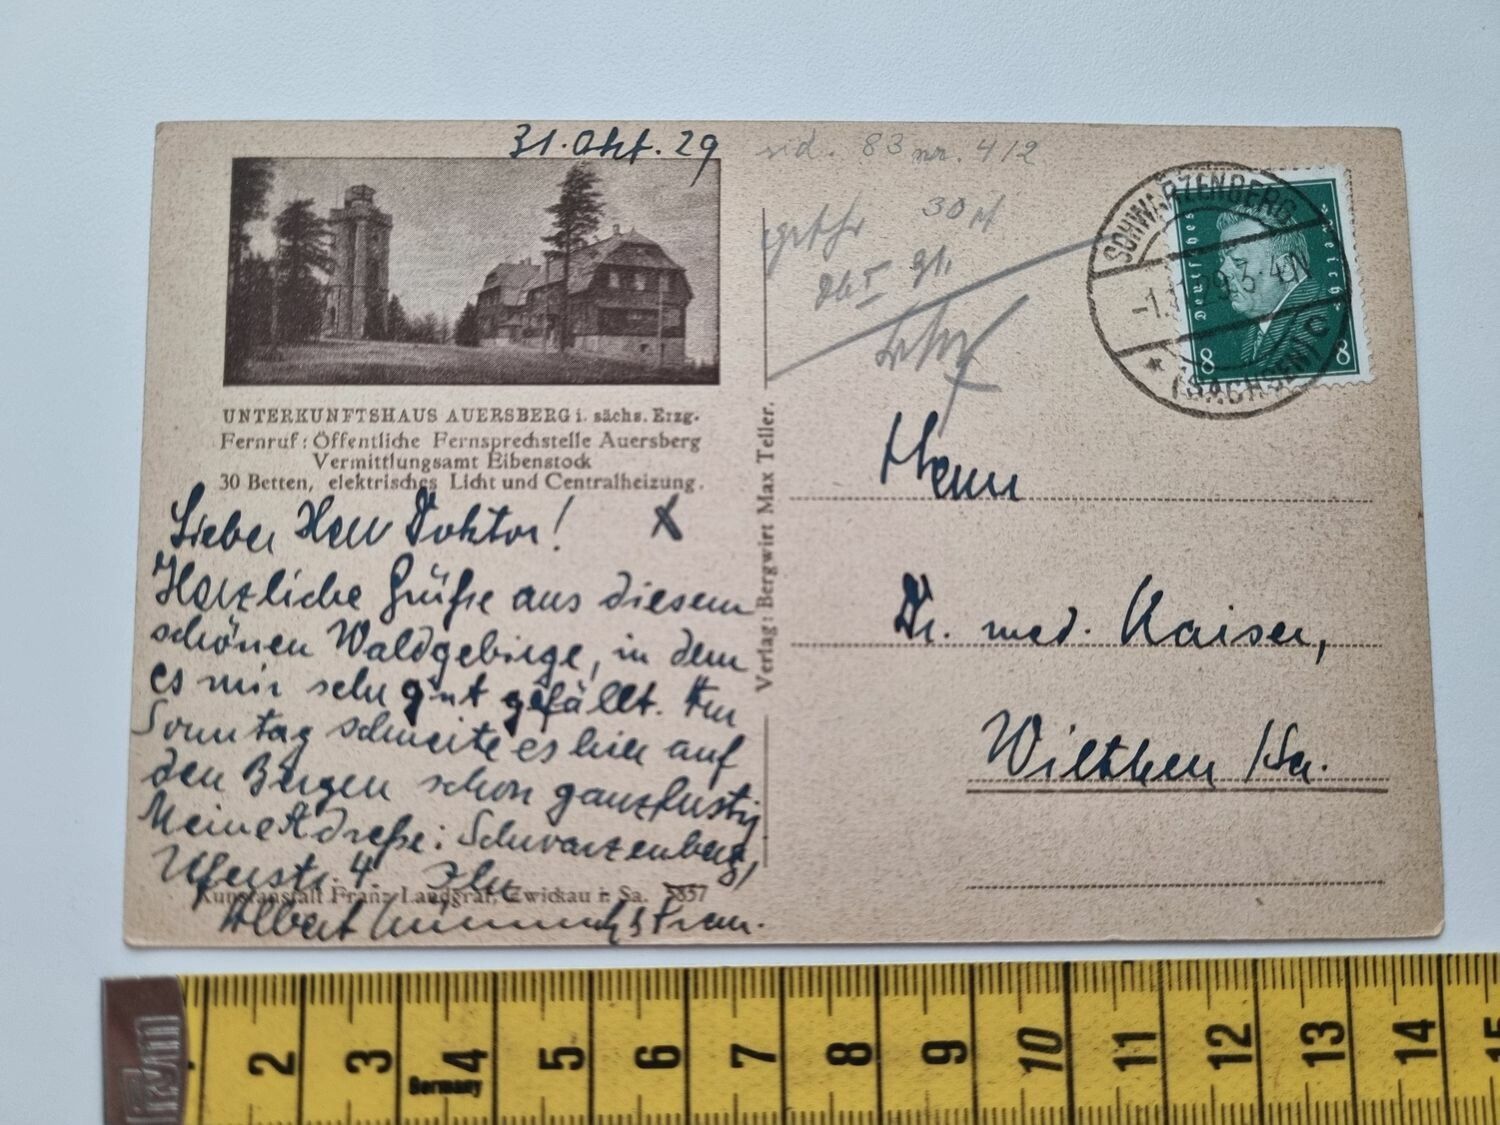 31. Okt. 29
nr. 412
30
UNTERKUNFTSHAUS AUERSBERG i. sächs. Erzg.
Fernruf: Öffentliche Fernsprechstelle Auersberg
Vermittlungsamt Eibenstock
30 Betten, elektrisches Licht und Centralheizung.
Lieber Herr Doktor!
Herzliche Grüße aus diesem
schönen Waldgebirge, in dem
es mir sehr gut gefällt. Am
Sonntag schneite es hier auf
den Bergen schon ganz lustig
Meine Adresse: Schwarzenberg,
Uferstr. 4. Ihr
Kunstanstalt Franz Landgraf, Zwickau i. Sa. 5857
Albert
Verlag: Bergwirt Max Teller.
SCHWARZENBERG
29.3-4N
(SACHSEN) C
Deutsches Reich
8 8
Herrn
Dr. med. Kaiser,
Wilthen /Sa.
Germany
2 3 4 5 6 7 8 9 10 11 12 13 14 15